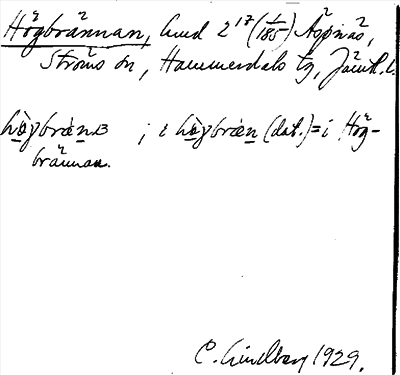 Högbrännan, hmd 2¹⁷ (1/185) Äspnäs,
Ströms sn, Hammerdals tg, Jämtl. l.
i (dat.) = i Hög-
brännan.
C. Lindberg 1929.